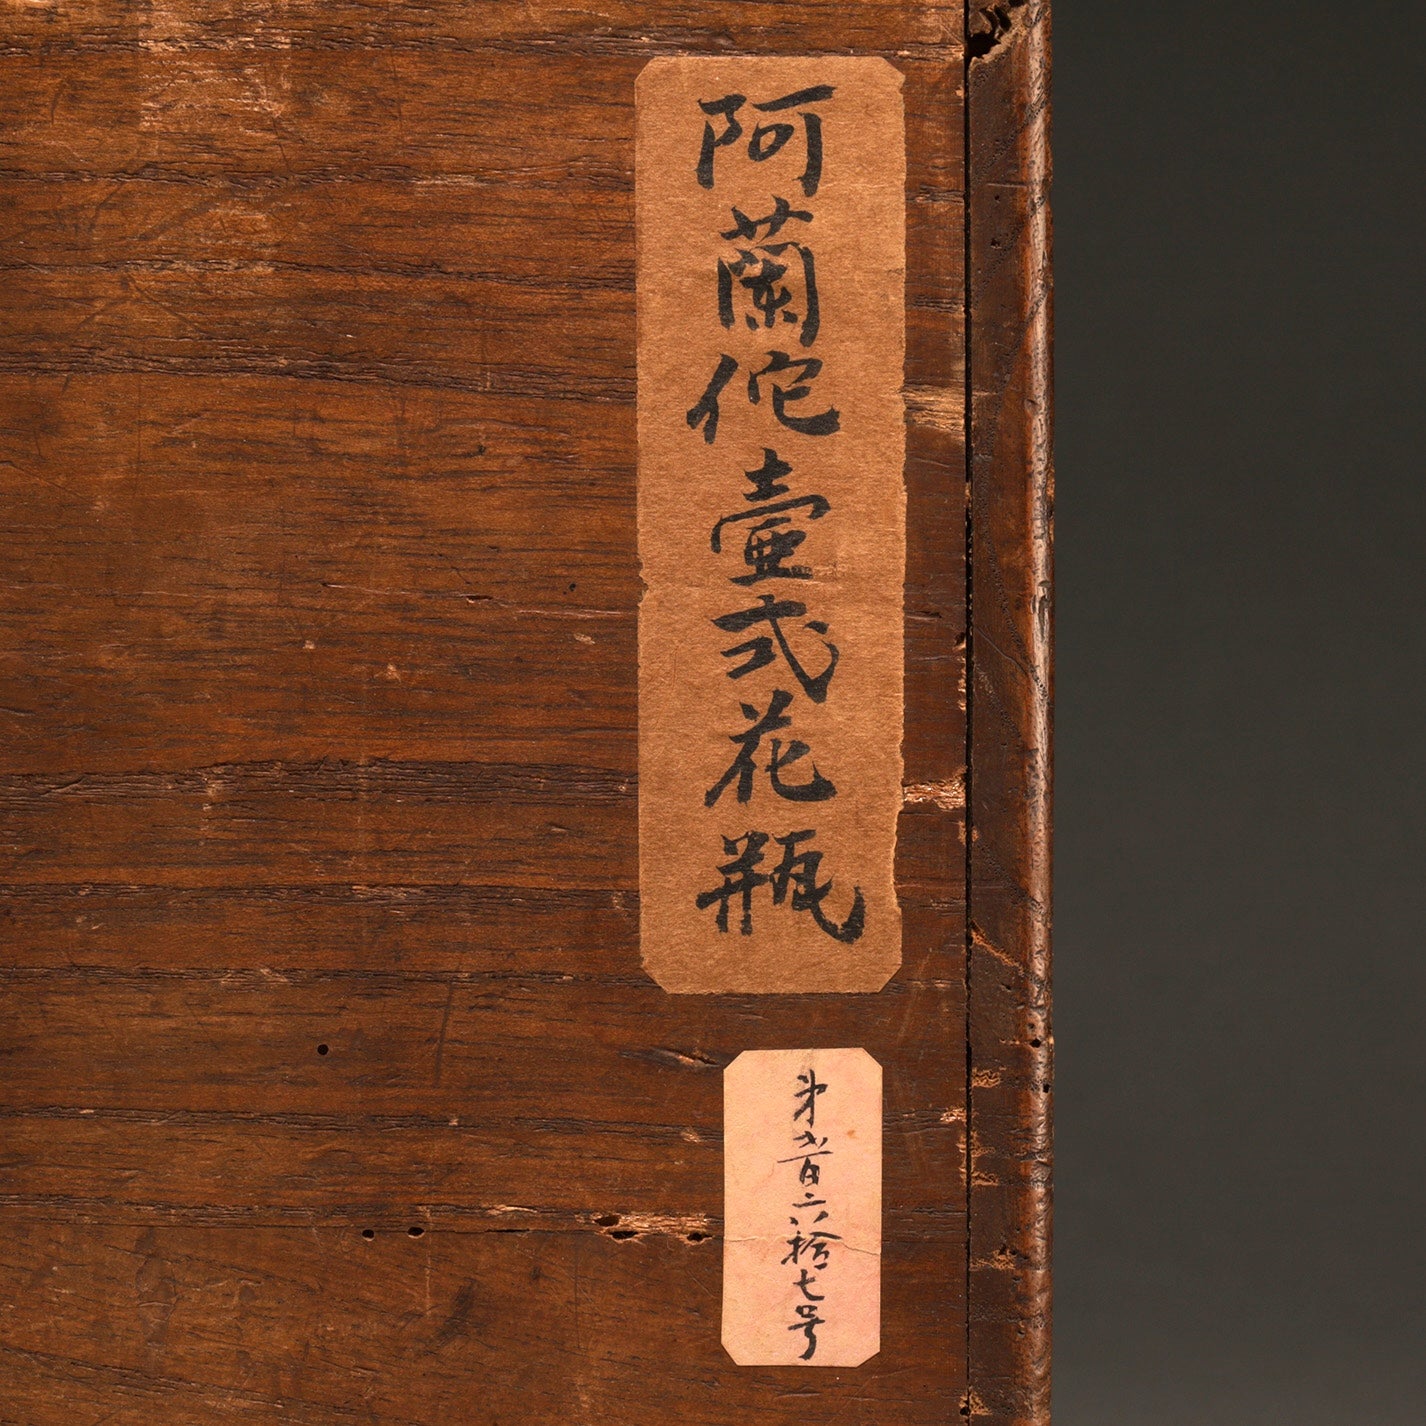 阿蘭佗壷式花瓶
第九百六拾七号